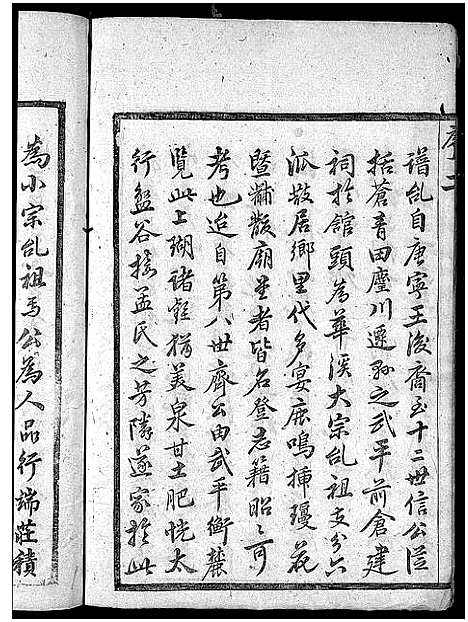 序二
譜乩自唐寧王後裔至十二世信公從
括蒼青田塵川遷孫之武平前倉建
祠於館頭為華溪大宗乩祖支分六
派散居鄉里代多宴鹿鳴插瓊花
暨黼黻廟堂者皆名登志籍昭〻可
考也迨自第八世齊公由武平衡麓
覽此上瑚諸雖揖美泉甘土肥恍太
行盤谷接孟氏之芳隣遂家於此
為小宗乩祖焉公為人品行端莊積